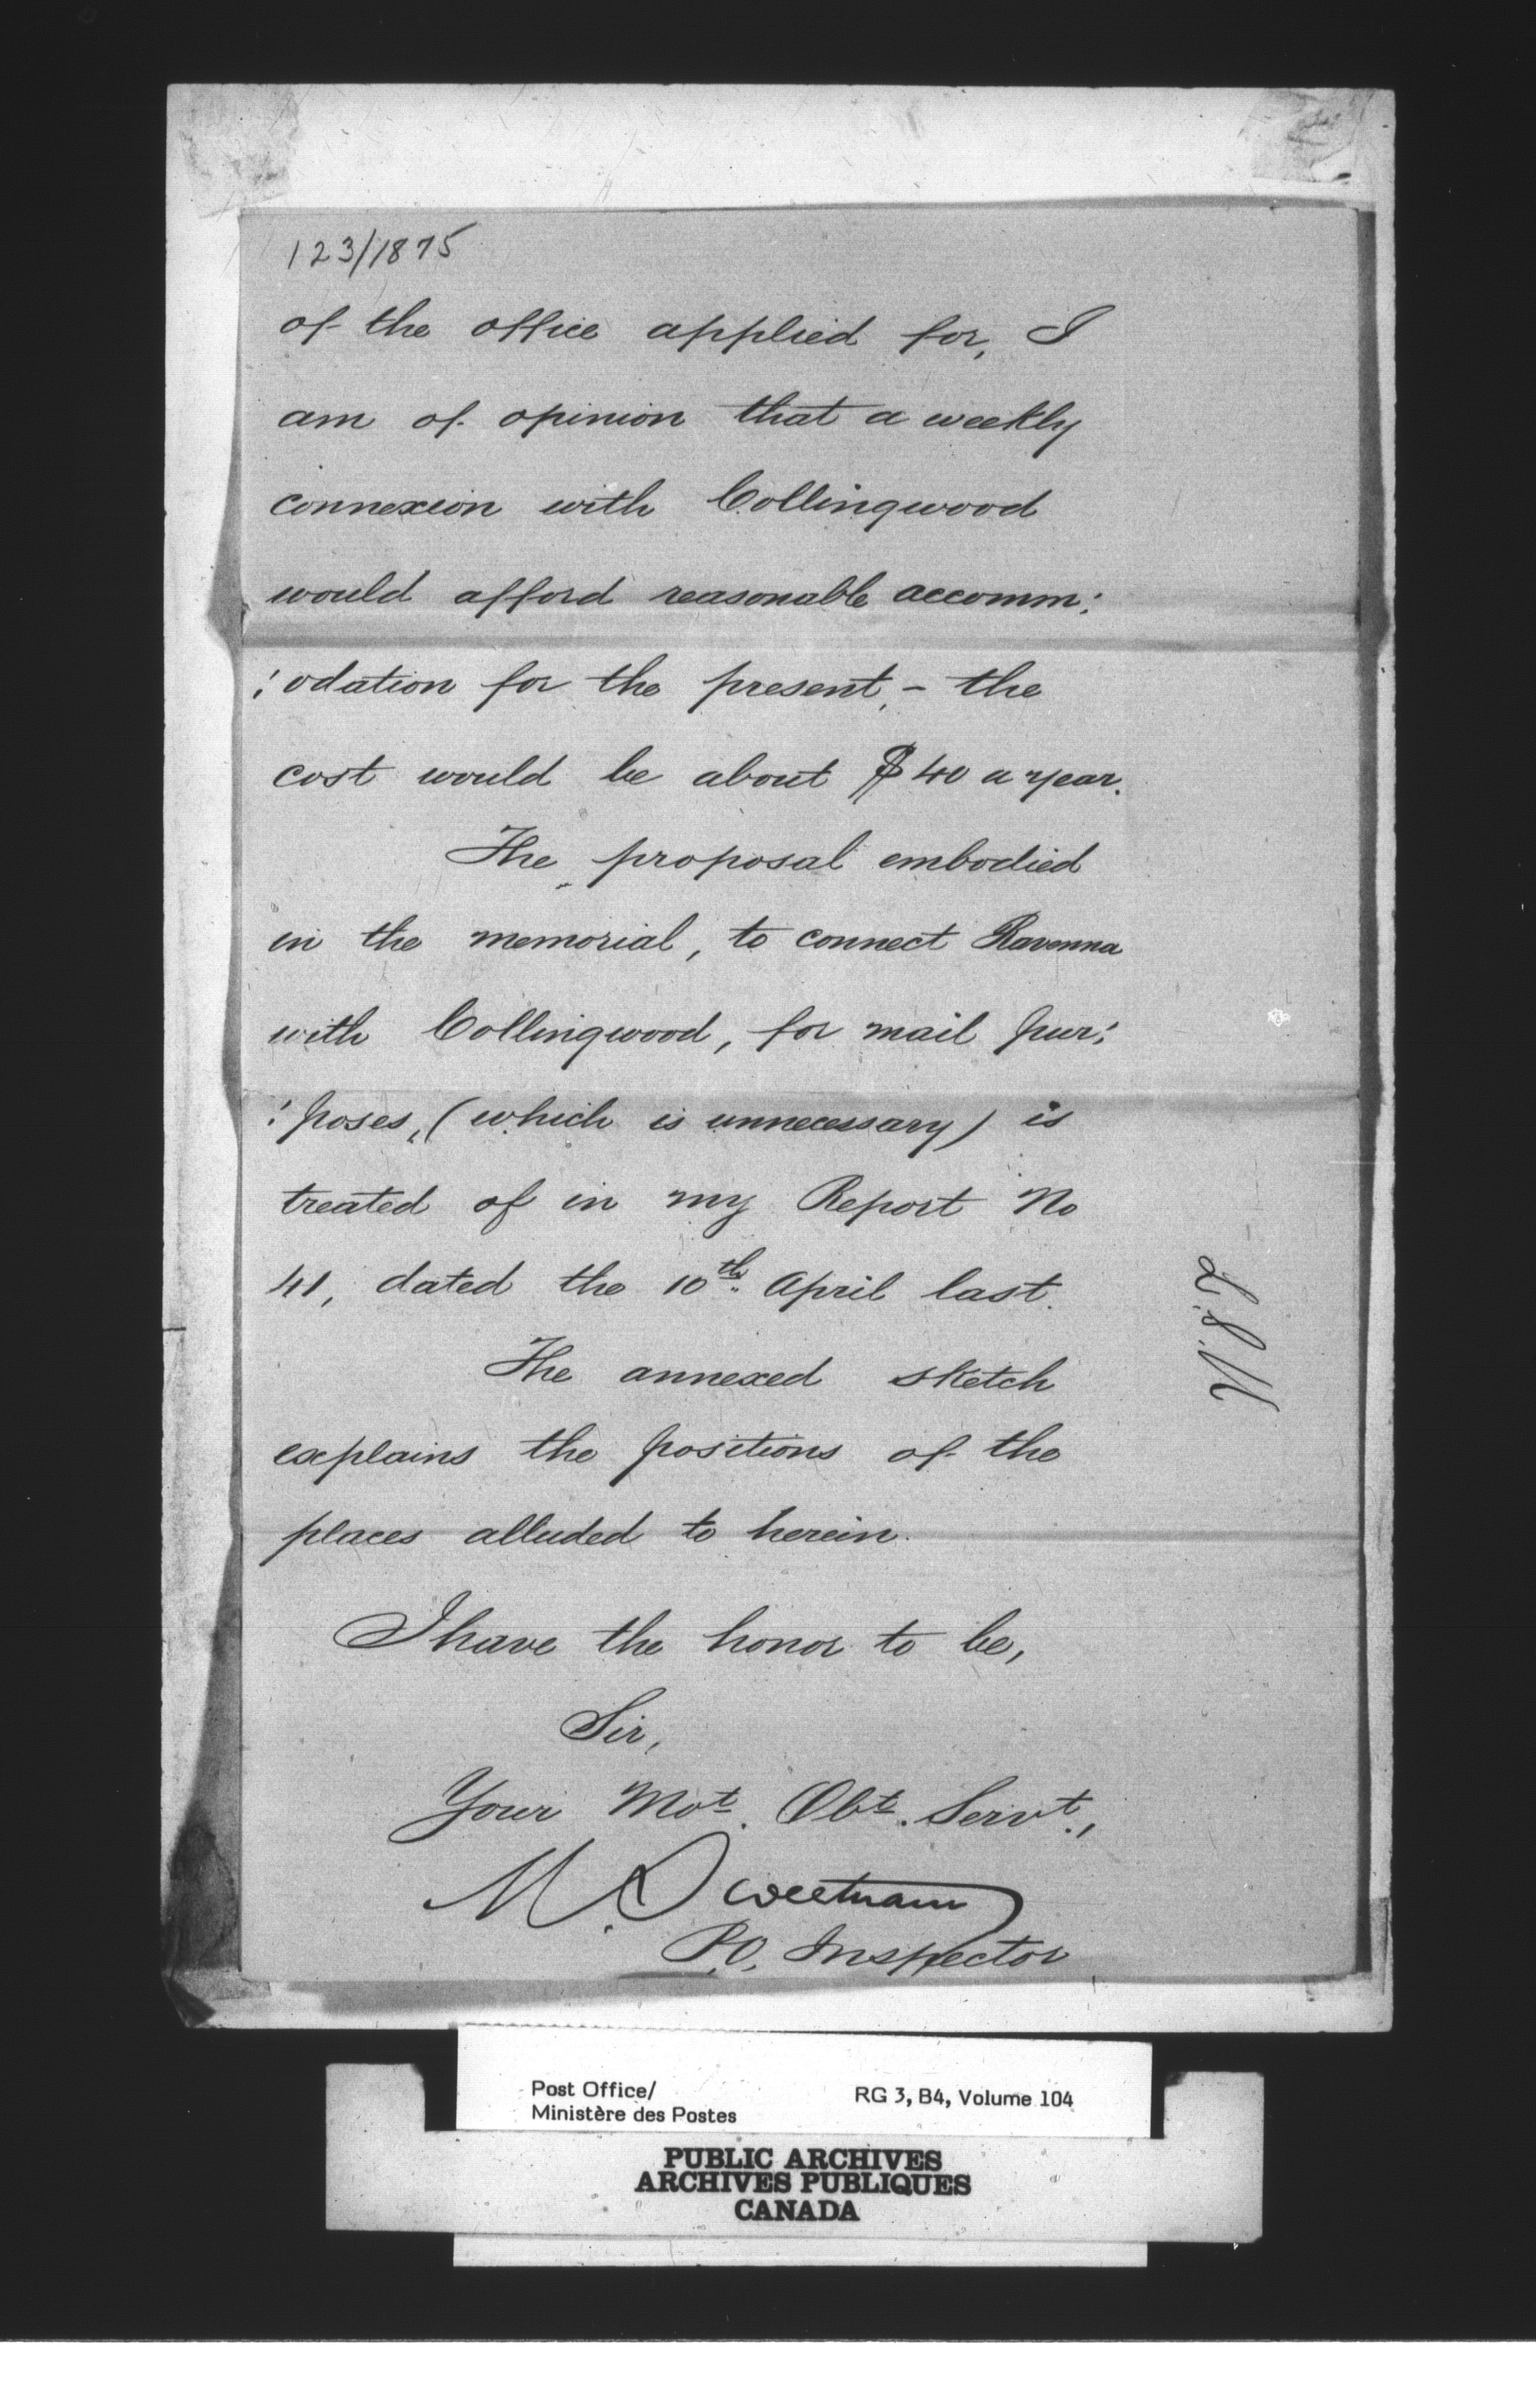 123/1875
of the office applied for, I
am of opinion that a weekly
connexion with Collingwood
would afford reasonable accomm:
:odation for the present, - the
cost would be about $40 a year.
The proposal embodied
in the memorial, to connect Ravenna
with Collingwood, for mail pur:
:poses, (which is unnecessary) is
treated of in my Report No
41, dated the 10th. April last.
The annexed sketch
explains the positions of the
places alluded to herein.
I have the honor to be,
Sir,
Your Mot. Obt. Servt.,
M. Sweetnam
P.O. Inspector
Post Office/
Ministère des Postes
RG 3, B4, Volume 104
PUBLIC ARCHIVES
ARCHIVES PUBLIQUES
CANADA